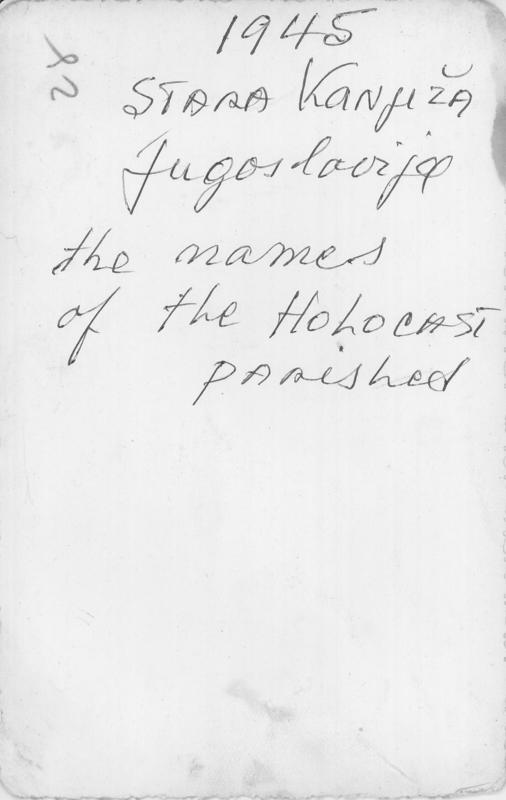 1945
STARA KANJIŽA
Jugoslavija
the names
of the Holocast
parished